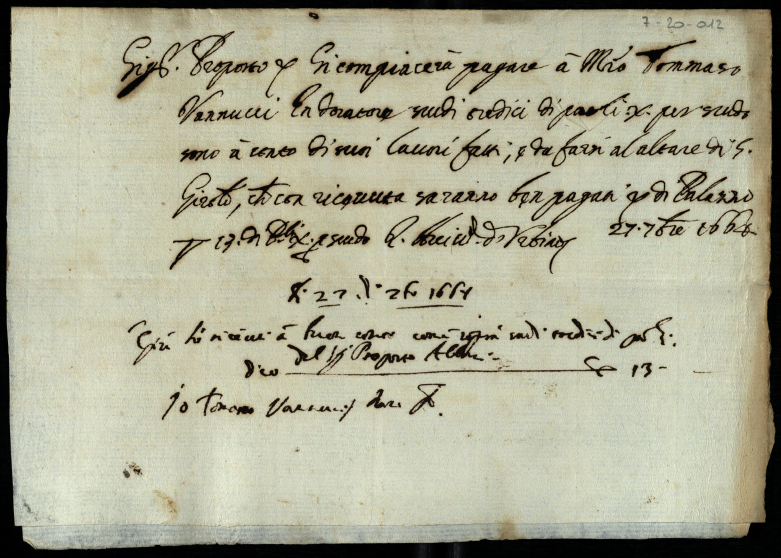 7-20-012
Sig.r Proposto si compiacerà pagare à Mro Tommaso
Vannucci Indoratore scudi tredici di paoli x. per scudo
sono à conto di suoi lavori fatti, e da farsi al altare di S.
Girol.o, che con ricevuta saranno ben pagati di Palazzo
27. 7bre 1664
13. di x. scudo d'Urbino
27 7bre 1664
Io ho ricevuto à buon conto come sopra scudi tredici di paoli
del Sig Proposto
dico 13-
Io Tomaso Vannucci